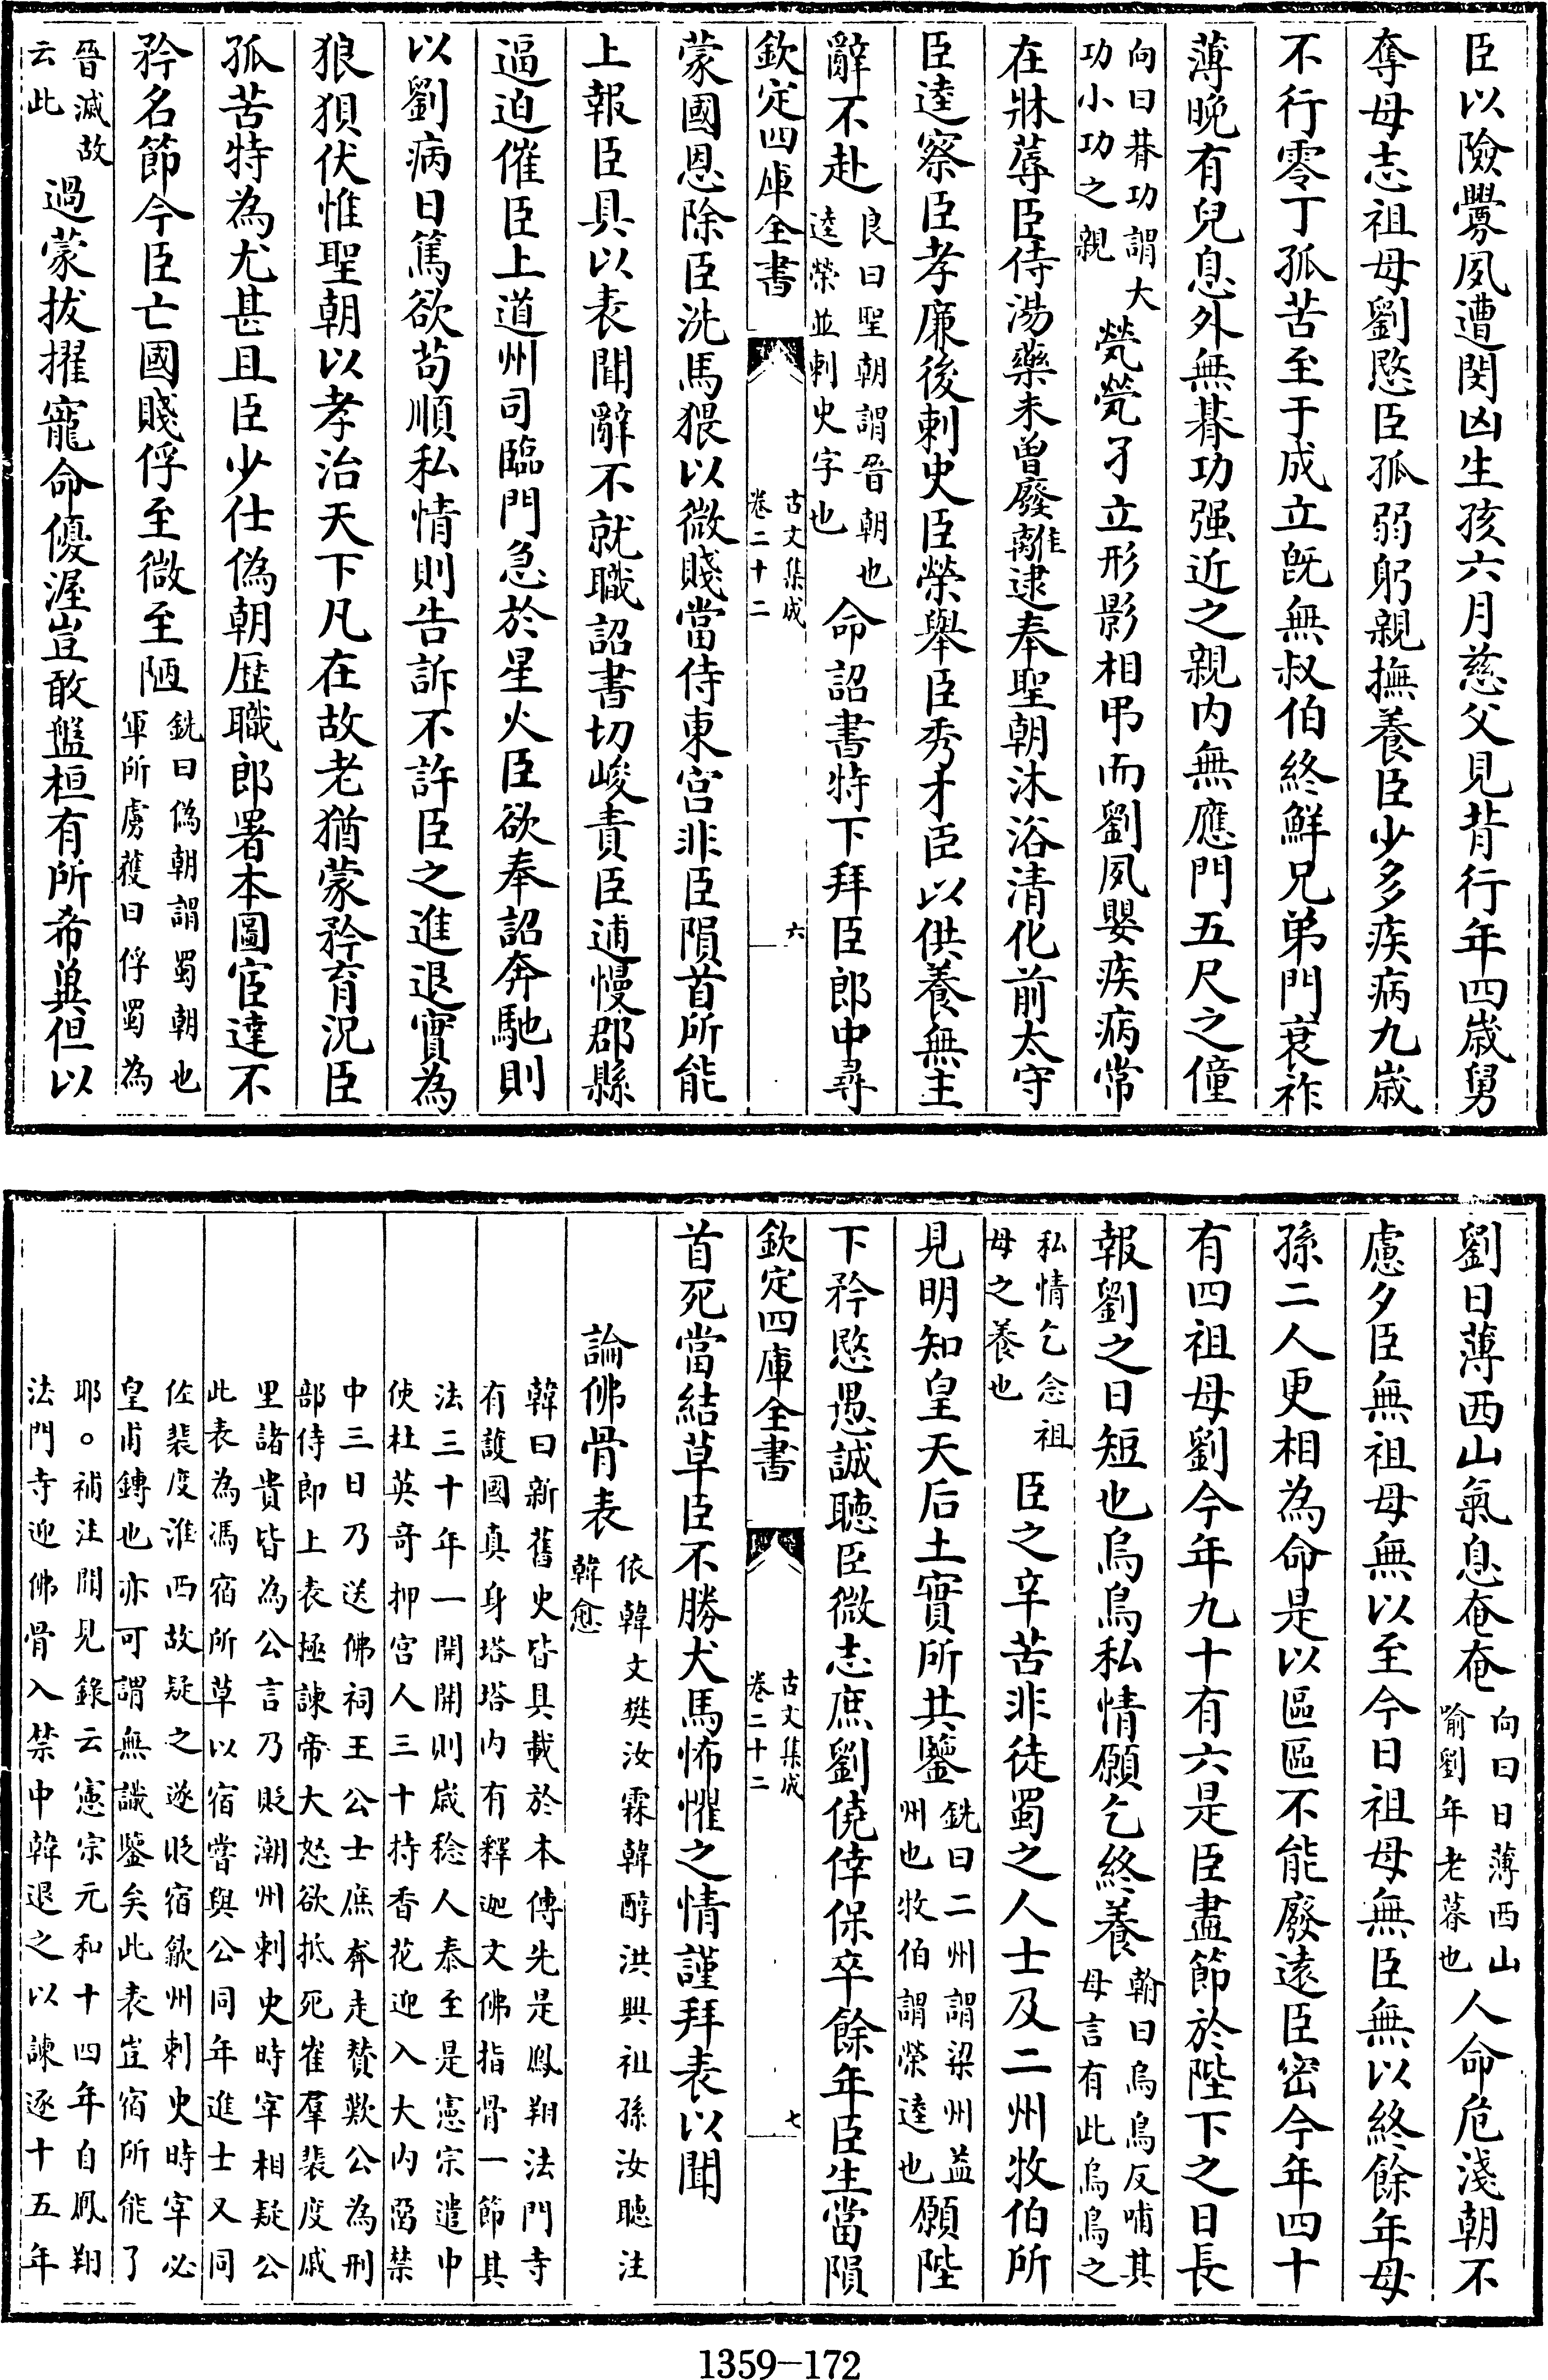 臣以險釁夙遭閔凶生孩六月慈父見背行年四歳舅
奪母志祖母劉愍臣孤弱躬親撫養臣少多疾病九歳
不行零丁孤苦至于成立旣無叔伯終鮮兄弟門衰祚
薄晚有兒息外無朞功强近之親内無應門五尺之僮
向曰朞功謂大
功小功之親
煢煢孑立形影相弔而劉夙嬰疾病常
在牀蓐臣侍湯藥未曾廢離逮奉聖朝沐浴清化前太守
臣逵察臣孝廉後刺史臣榮舉臣秀才臣以供養無主
辭不赴
良曰聖朝謂晉朝也
逵榮並刺史字也
命詔書特下拜臣郎中尋
欽定四庫全書
古文集成
卷二十二
六
蒙國恩除臣洗馬猥以微賤當侍東宫非臣隕首所能
上報臣具以表聞辭不就職詔書切峻責臣逋慢郡縣
逼迫催臣上道州司臨門急於星火臣欲奉詔奔馳則
以劉病日篤欲苟順私情則告訴不許臣之進退實為
狼狽伏惟聖朝以孝治天下凡在故老猶蒙矜育況臣
孤苦特為尤甚且臣少仕偽朝歴職郎署本圖宦達不
矜名節今臣亡國賤俘至微至陋
銑曰偽朝謂蜀朝也
軍所虜獲曰俘蜀為
晉滅故
云此
過蒙拔擢寵命優渥豈敢盤桓有所希冀但以
劉日薄西山氣息奄奄
向曰日薄西山
喻劉年老暮也
人命危淺朝不
慮夕臣無祖母無以至今日祖母無臣無以終餘年母
孫二人更相為命是以區區不能廢遠臣密今年四十
有四祖母劉今年九十有六是臣盡節於陛下之日長
報劉之日短也烏鳥私情願乞終養
翰曰烏鳥反哺其
母言有此烏鳥之
私情乞念祖
母之養也
臣之辛苦非徒蜀之人士及二州牧伯所
見明知皇天后土實所共鑒
銑曰二州謂梁州益
州也牧伯謂榮逵也
願陛
下矜愍愚誠聴臣微志庶劉僥倖保卒餘年臣生當隕
欽定四庫全書
古文集成
卷二十二
七
首死當結草臣不勝犬馬怖懼之情謹拜表以聞
論佛骨表
依韓文樊汝霖韓醇洪興祖孫汝聴注
韓愈
韓曰新舊史皆具載於本傳先是鳳翔法門寺
有護國真身塔塔内有釋迦文佛指骨一節其
法三十年一開開則歳稔人泰至是憲宗遣中
使杜英奇押宫人三十持香花迎入大内留禁
中三日乃送佛祠王公士庶奔走賛歎公為刑
部侍郎上表極諫帝大怒欲抵死崔羣裴度戚
里諸貴皆為公言乃貶潮州刺史時宰相疑公
此表為馮宿所草以宿嘗與公同年進士又同
佐裴度淮西故疑之遂貶宿歙州刺史時宰必
皇甫鎛也亦可謂無識鑒矣此表豈宿所能了
耶。補注聞見錄云憲宗元和十四年自鳳翔
法門寺迎佛骨入禁中韓退之以諫逐十五年
1359—172